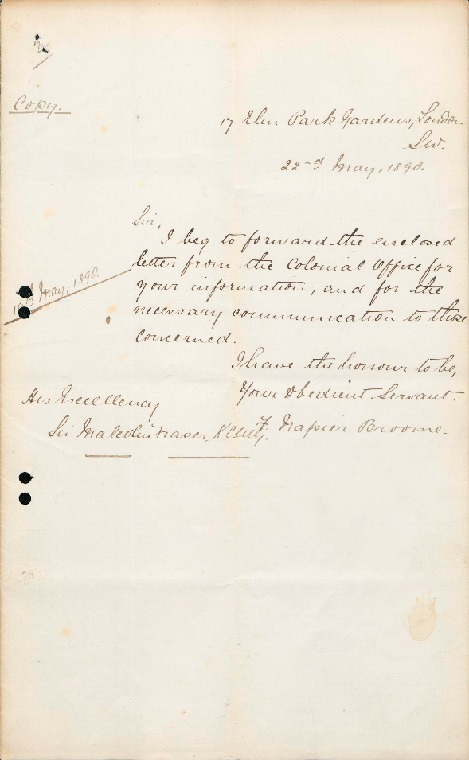 2
Copy.
17 Elm Park Gardens, London.
S.W.
22nd May, 1890.
Sir,
I beg to forward the enclosed
letter from the Colonial Office for
May, 1890
your information, and for the
necessary communication to those
concerned.
I have the honour to be,
Your Obedient Servant.
F. Napier Broome.
His Excellency
Sir Malcolm Fraser, KCMG